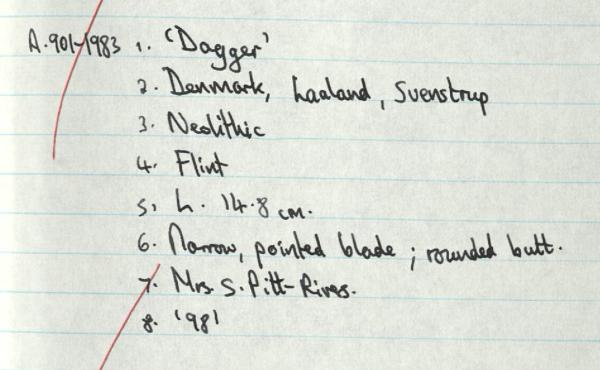 A.901-1983 1. 'Dagger'
2. Denmark, Laaland, Svenstrup
3. Neolithic
4. Flint
5. L. 14.8 cm.
6. Narrow, pointed blade; rounded butt.
7. Mrs. S. Pitt-Rivers.
8. '98'